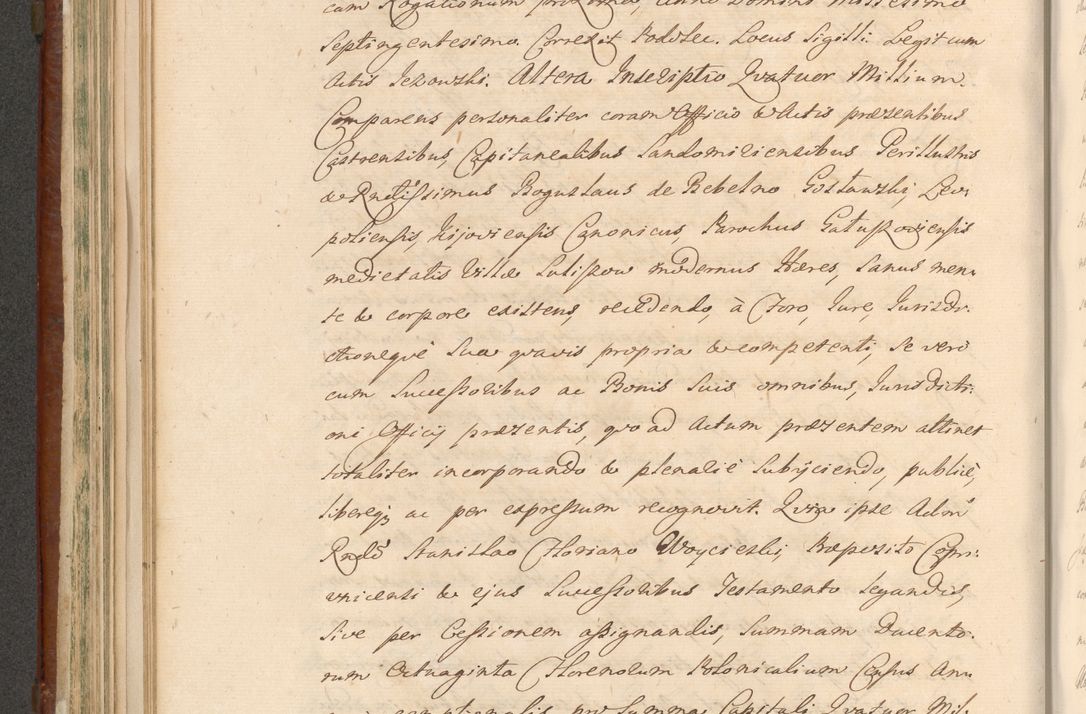 cam Rogationum proxima, Anno Domini Millesimo
Septingentesimo. Correxit Podolec. Locus Sigilli. Legit cum
Actis Jezowski. Altera Inscriptio Qvatuor Millium.
Comparens personaliter coram Officio & Actis præsentibus
Castrensibus, Capitanealibus Sandomiriensibus Perillustris
& Rndissimus Boguslaus de Bebelno Gosławski, Leo-
poliensis, Kijoviensis Canonicus, Parochus Gałuszoviensis
medietatis Villæ Sulisow modernus Hæres, Sanus men-
te & corpore existens, recedendo, à Foro, Jure, Jurisdi-
ctioneqve Sua qvavis propria & competenti, Se vero
cum Successoribus ac Bonis Suis omnibus, Jurisdicti-
oni Officij præsentis, qvo ad Actum præsentem attinet
totaliter incorporando & plenariè Subijciendo, publicè,
libereq; ac per expressum recognovit. Qvia ipse Adm
Rndo Stanislao Floriano Woycieski, Præposito Copri-
vnicensi & ejus Successoribus Testamento legandis,
Sive per Cessionem assignandis, Summam Ducento-
rum Octuaginta Florenorum Polonicalium Census Annu
pro Summa Capitali Qvatuor Mil-